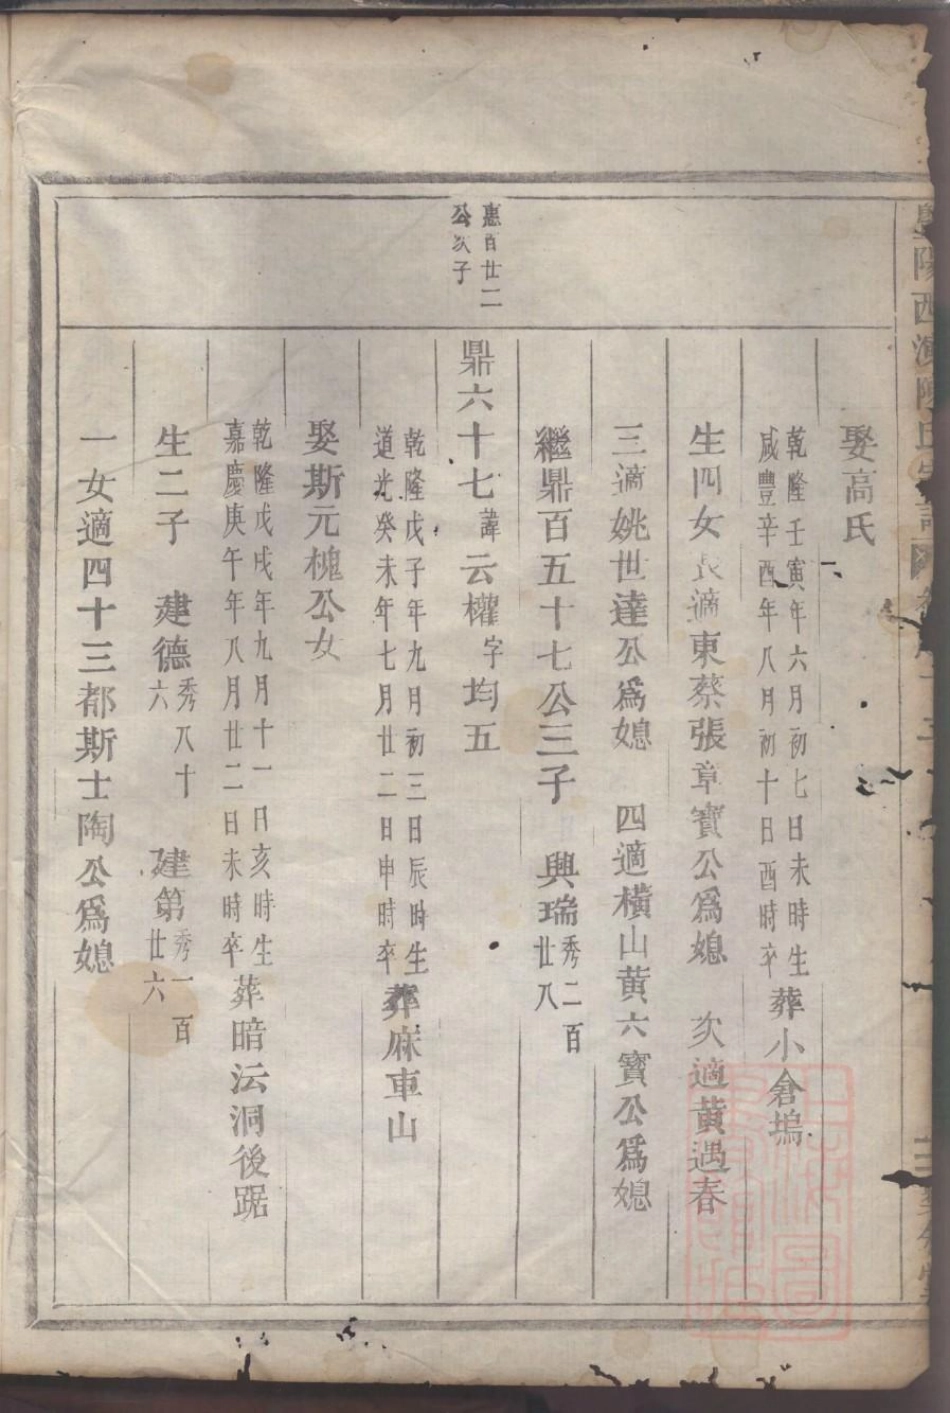 娶高氏
乾隆壬寅年六月初七日未時生
咸豐辛酉年八月初十日酉時卒
葬小倉塢
生四女長適東蔡張章寳公爲媳 次適黃遇春
三適姚世達公爲媳 四適橫山黃六寳公爲媳
繼鼎百五十七公三子 興瑞秀二百廿八
惠百廿二
公次子
鼎六十七諱云權字均五
乾隆戊子年九月初三日辰時生
道光癸未年七月廿二日申時卒
葬麻車山
娶斯元槐公女
乾隆戊戌年九月十一日亥時生
嘉慶庚午年八月廿二日未時卒
葬暗沄洞後踞
生二子 建德秀八十六 建第秀一百廿六
一女適四十三都斯士陶公爲媳